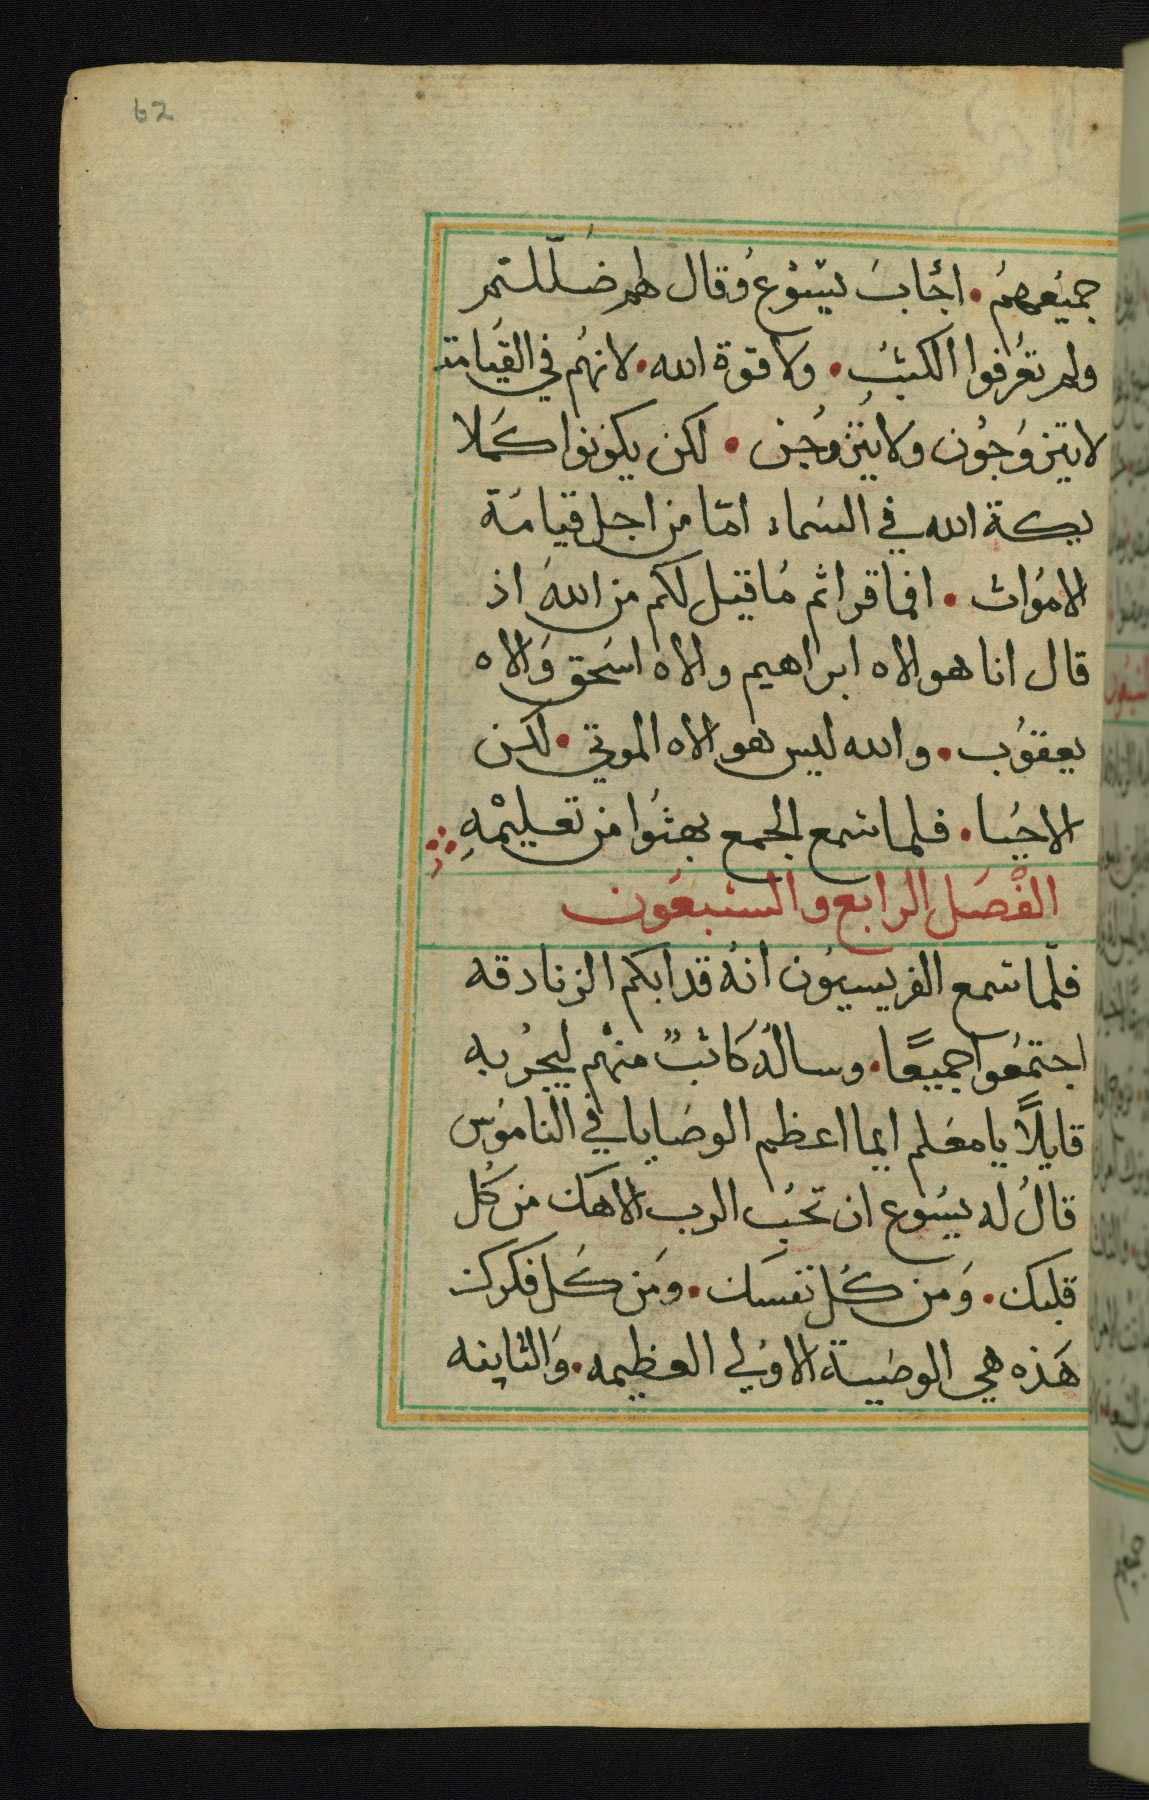 62
جميعهم. اجاب يسوع وقال لهم ضللتم
ولم تعرفوا الكتب. ولا قوة الله. لانهم في القيامة
لا يتزوجون ولا يتزوجن. لكن يكونوا كملا
يكة الله في السماء اما من اجل قيامة
الاموات. افما قراتم ما قيل لكم من الله اذ
قال انا هو الاه ابراهيم والاه اسحق والاه
يعقوب. والله ليس هو الاه الموتي. لكن
الاحيا. فلما سمع الجمع بهتوا من تعليمه
الفصل الرابع والسبعون
فلما سمع الفريسيون انه قد ابكم الزنادقه
اجتمعوا جميعًا. وساله كاتبٌ منهم ليجربه
قايلاً يا معلم ايما اعظم الوصايا في الناموس
قال له يسوع ان تحب الرب الاهك من كل
قلبك. ومن كل نفسك. ومن كل فكرك
هذه هي الوصية الاولي العظيمه. والثانيه